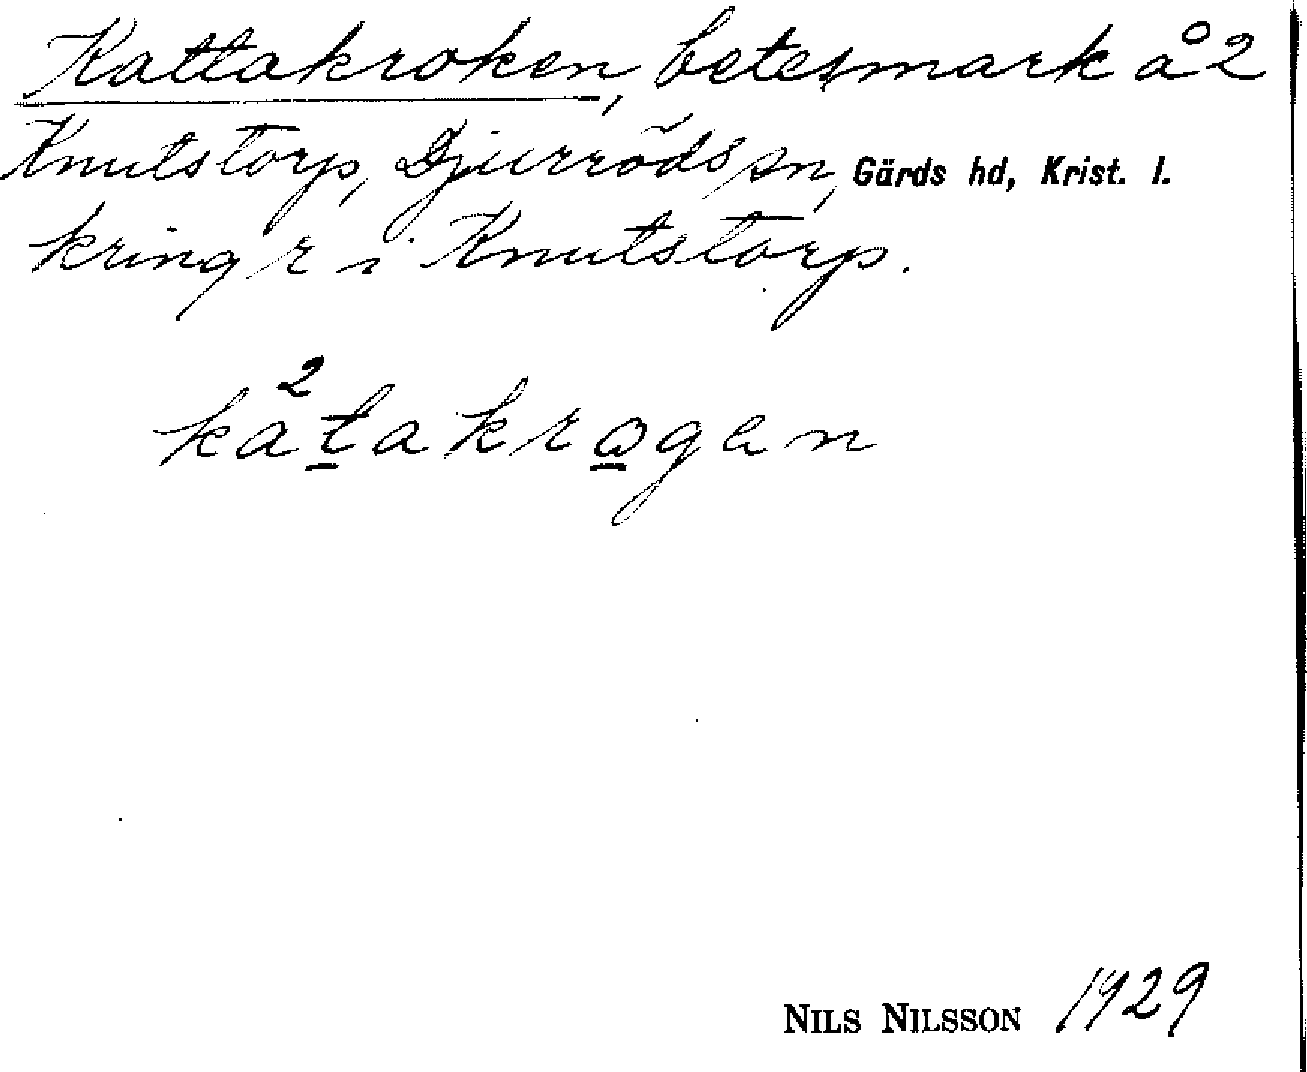 Kattakroken, betesmark å 2
Knutstorp, Djurröds sn, Gärds hd, Krist. l.
kring r i Knutstorp.
ka²t̲akro̲gen
NILS NILSSON 1929